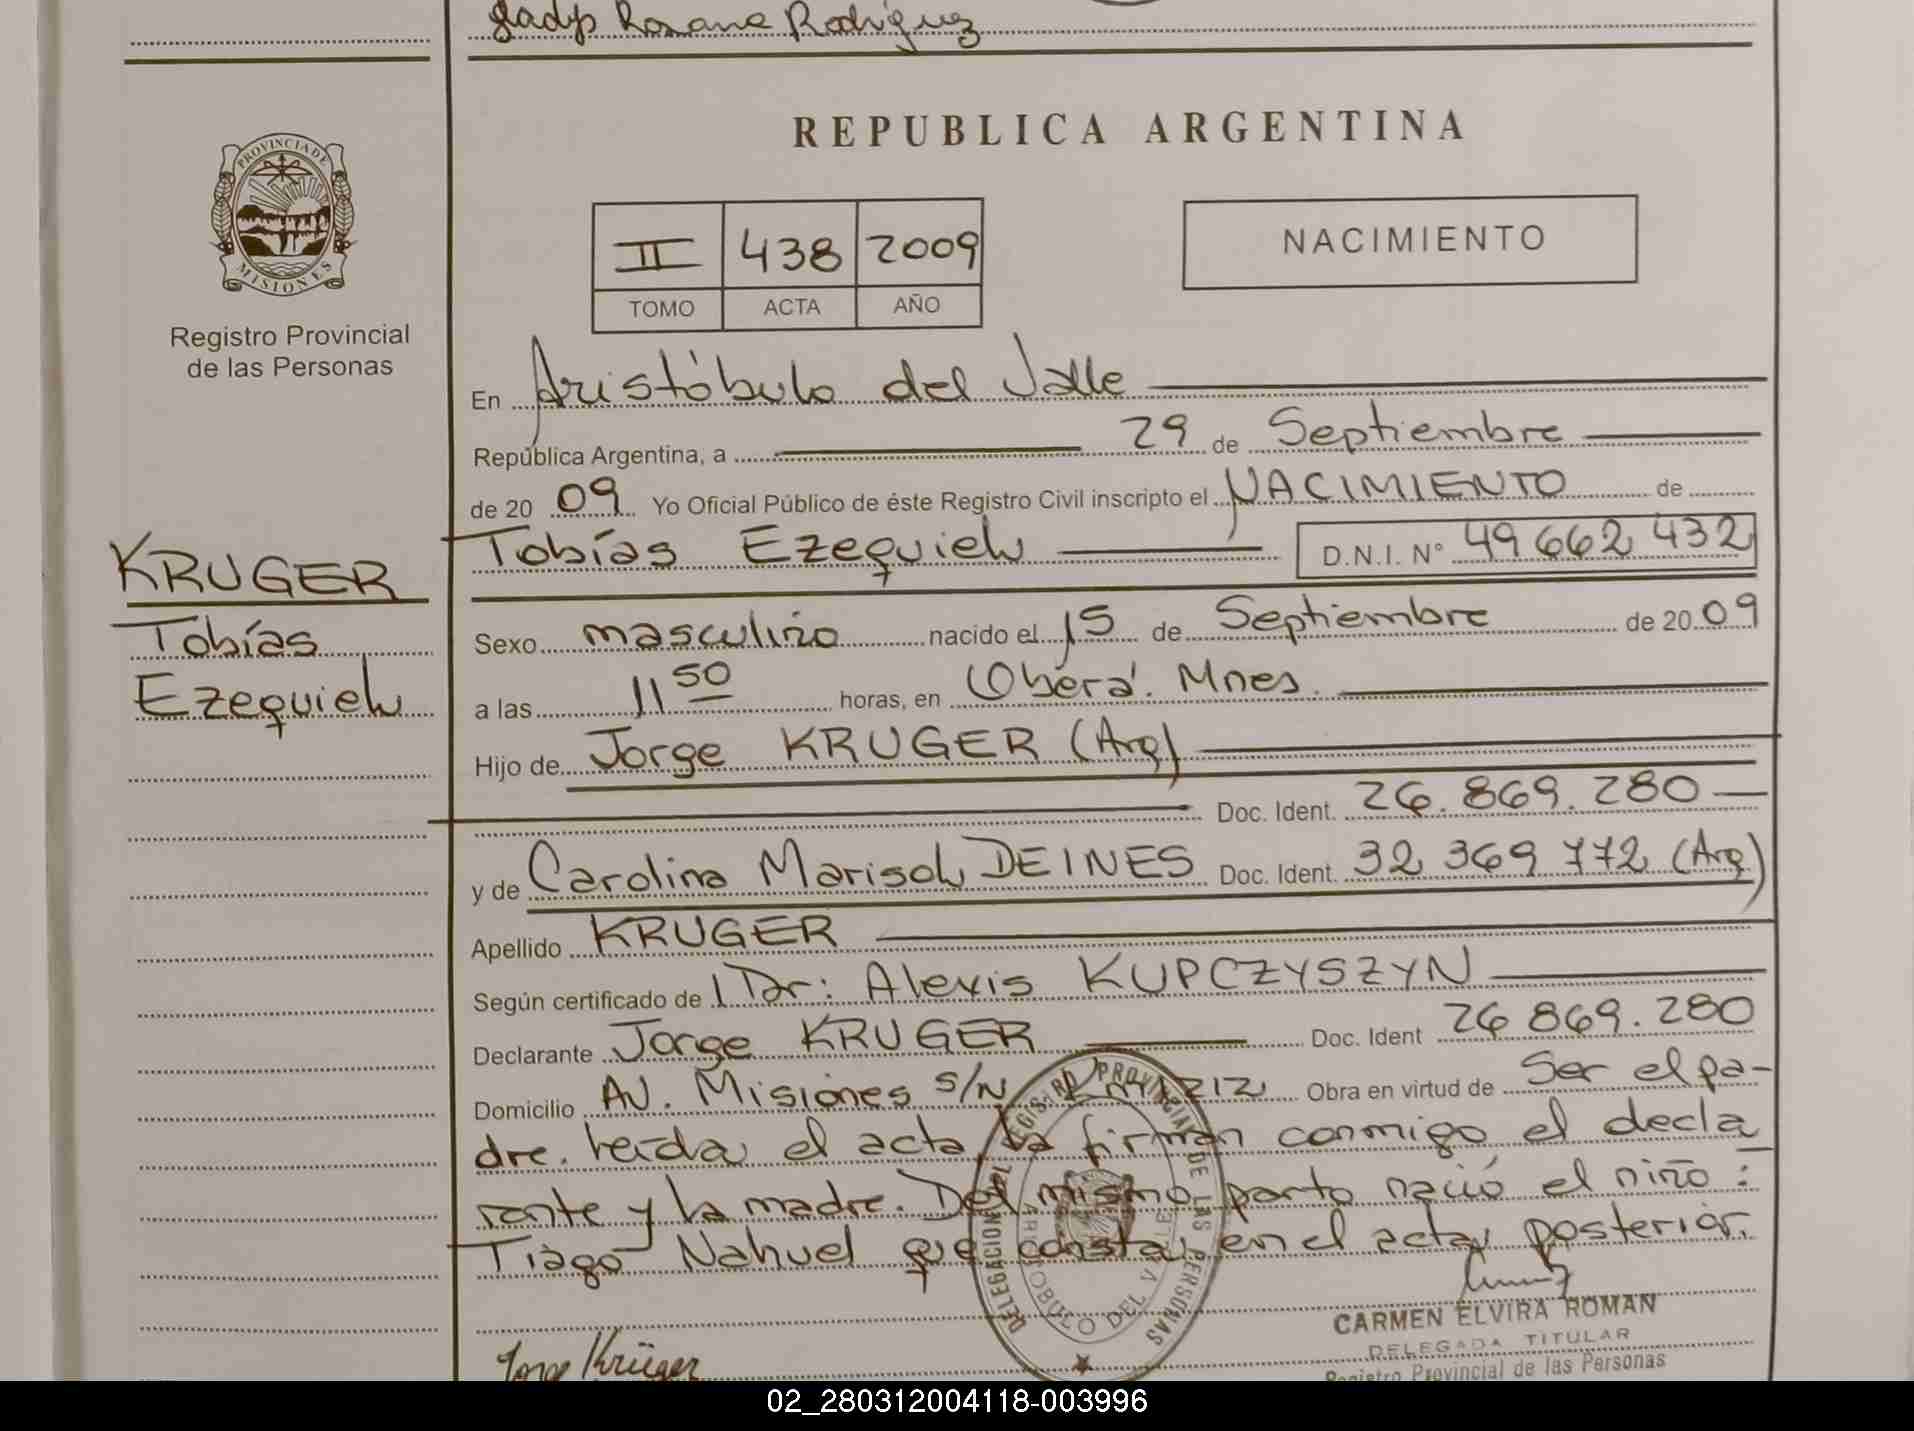 Gladys Roxana Rodríguez
REPUBLICA ARGENTINA
PROVINCIA DE
MISIONES
Registro Provincial
de las Personas
II 438 2009
TOMO ACTA AÑO
NACIMIENTO
En Aristóbulo del Valle
República Argentina, a 29 de Septiembre
de 20 09 Yo Oficial Público de éste Registro Civil inscripto el NACIMIENTO de
Tobías Ezequiel D.N.I. N° 49 662 432
KRUGER
Tobías
Ezequiel
Sexo masculino nacido el 15 de Septiembre de 20 09
a las 11 50 horas, en Oberá. Mnes.
Hijo de Jorge KRUGER (Arg)
Doc. Ident. 26.869.280
y de Carolina Marisol DEINES Doc. Ident. 32 369 772 (Arg)
Apellido KRUGER
Según certificado de Dr: Alexis KUPCZYSZYN
Declarante Jorge KRUGER Doc. Ident 26 869.280
Domicilio AV. Misiones S/N Km 1212 Obra en virtud de Ser el pa-
dre. Leída el acta, la firman conmigo el decla
rante y la madre. Del mismo parto nació el niño:
Tiago Nahuel que consta en el acta posterior.
DELEGACION DEL REGISTRO PROVINCIAL DE LAS PERSONAS
ARISTOBULO DEL VALLE
CARMEN ELVIRA ROMAN
DELEGADA TITULAR
Registro Provincial de las Personas
Jorge Krüger
02_280312004118-003996